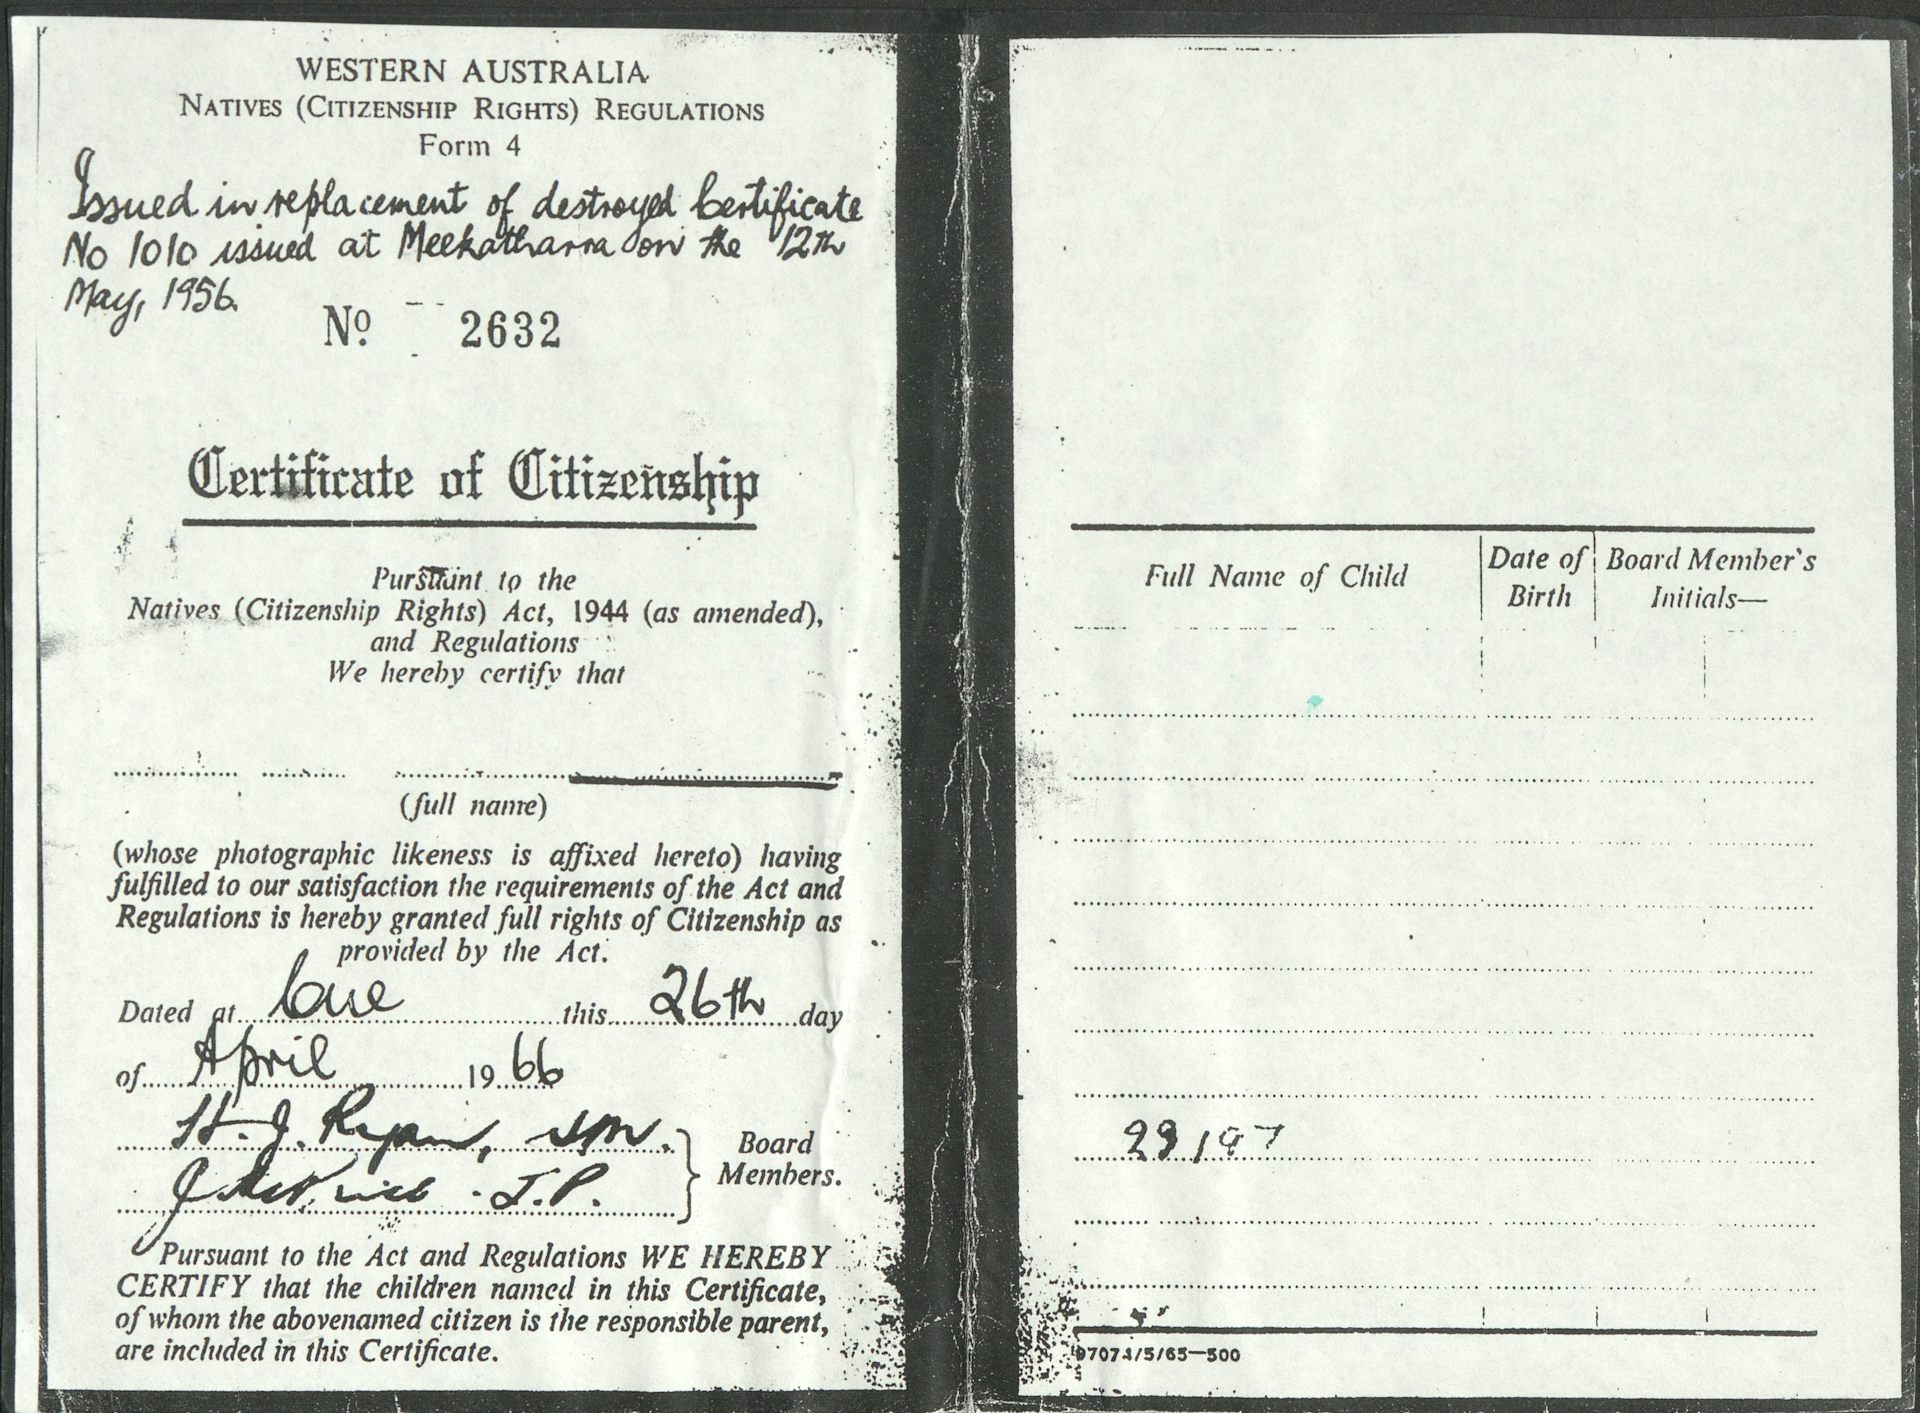 WESTERN AUSTRALIA
NATIVES (CITIZENSHIP RIGHTS) REGULATIONS
Form 4
Issued in replacement of destroyed Certificate
No 1010 issued at Meekatharra on the 12th
May, 1956.
No 2632
Certificate of Citizenship
Pursuant to the
Natives (Citizenship Rights) Act, 1944 (as amended),
and Regulations
We hereby certify that
(full name)
(whose photographic likeness is affixed hereto) having
fulfilled to our satisfaction the requirements of the Act and
Regulations is hereby granted full rights of Citizenship as
provided by the Act.
Dated at Cue this 26th day
of April 1966
H. J. Ryan, SM.
J. J.P.
Board
Members.
Pursuant to the Act and Regulations WE HEREBY
CERTIFY that the children named in this Certificate,
of whom the abovenamed citizen is the responsible parent,
are included in this Certificate.
Full Name of Child
Date of
Birth
Board Member's
Initials—
29197
97074/5/65—500